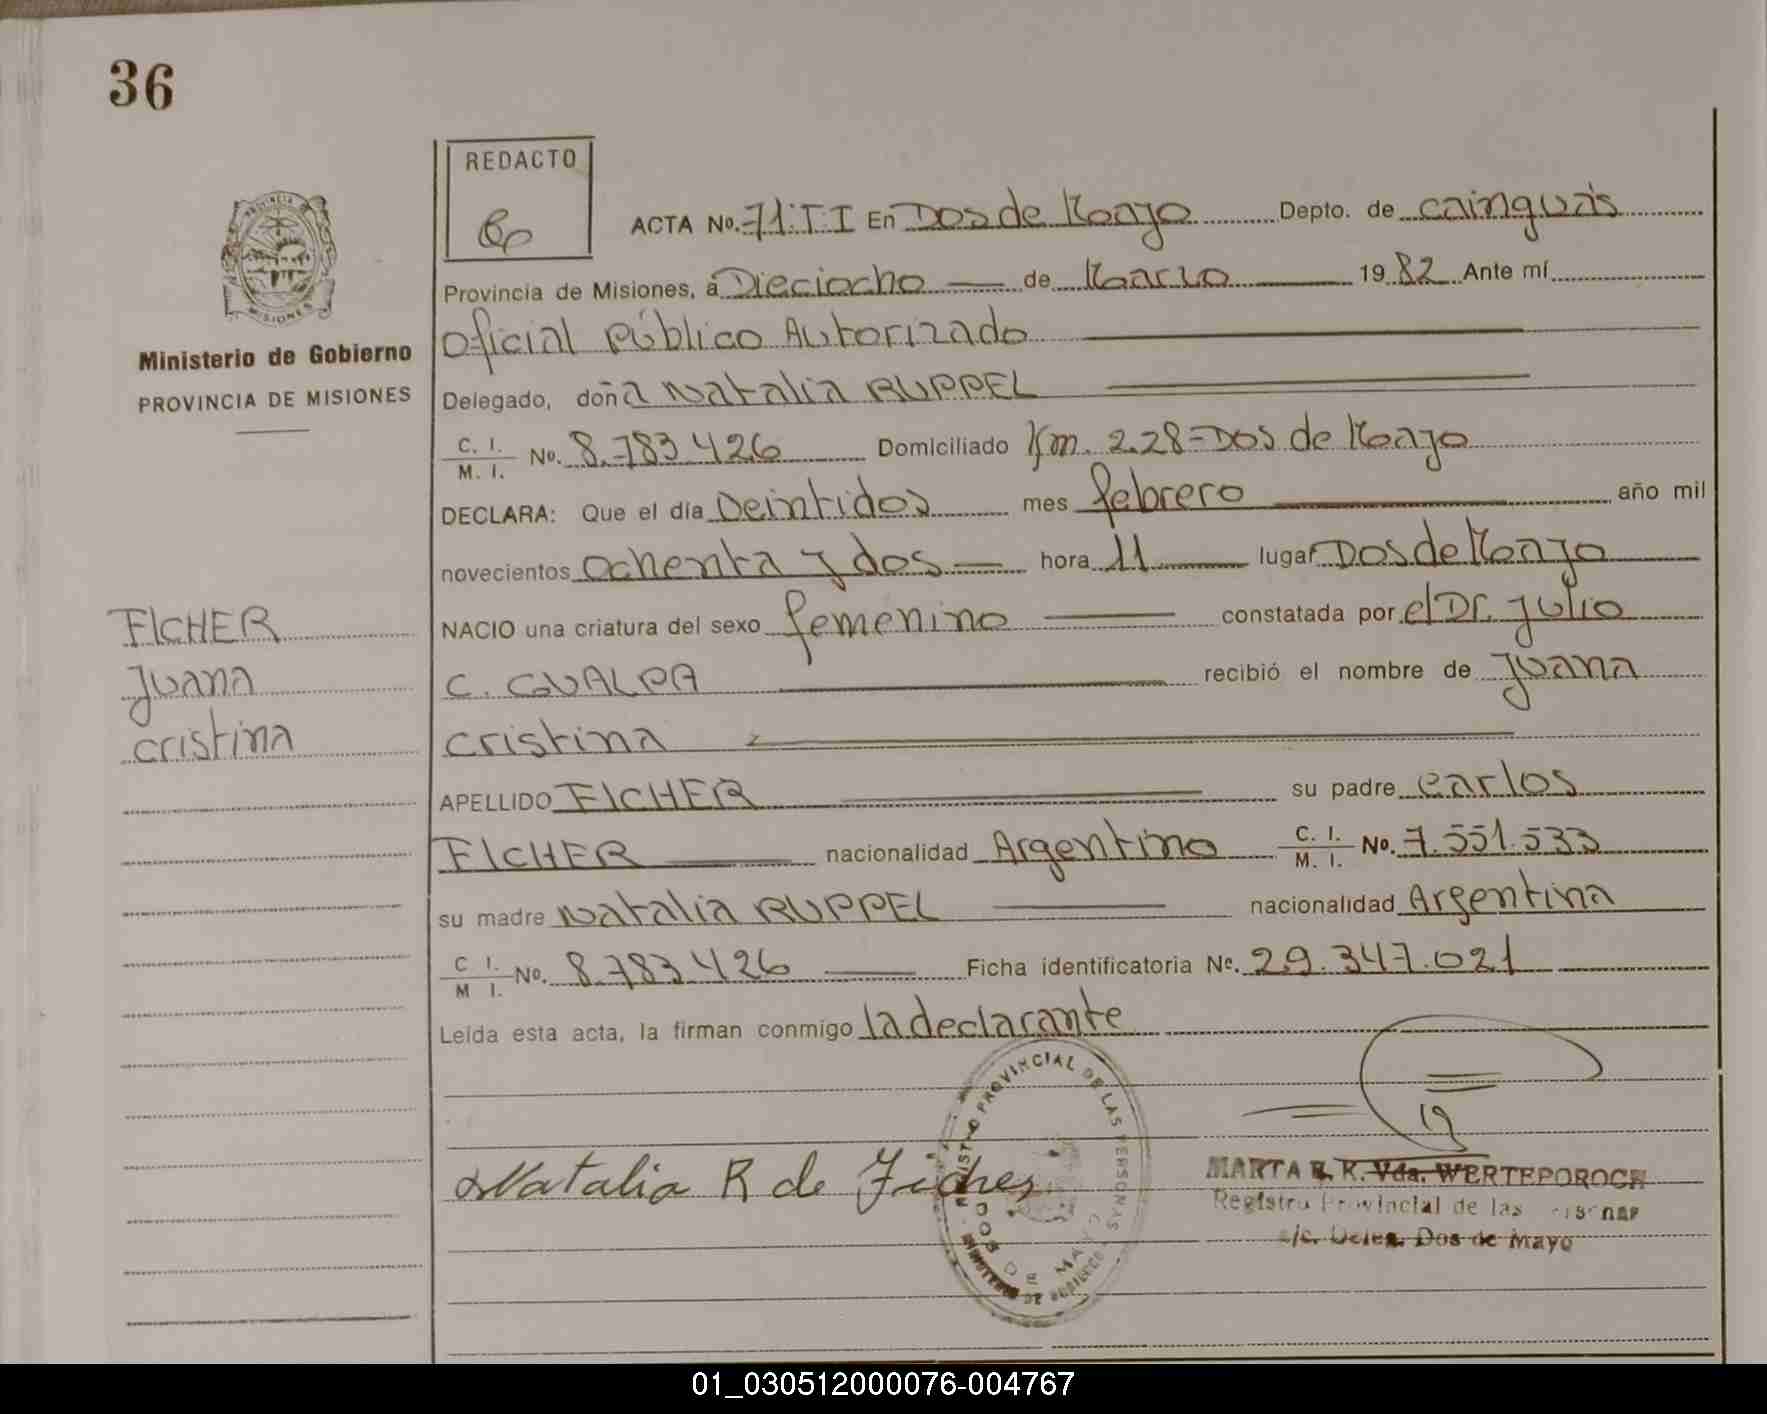 36
REDACTO
ACTA No. 71.T.I En Dos de Mayo Depto. de cainguás
Provincia de Misiones, a Dieciocho de Marzo 1982 Ante mí
Oficial Público Autorizado
Ministerio de Gobierno
PROVINCIA DE MISIONES
Delegado, doña Natalia RUPPEL
C. I.
M. I. No. 8.783.426 Domiciliado Km. 228-Dos de Mayo
DECLARA: Que el día Veintidos mes febrero año mil
novecientos ochenta y dos hora 11 lugar Dos de Mayo
FICHER
Juana
cristina
NACIO una criatura del sexo femenino constatada por el Dr. Julio
C. GUALPA recibió el nombre de Juana
cristina
APELLIDO FICHER su padre carlos
FICHER nacionalidad Argentino C. I. M. I. No. 7.551.533
su madre Natalia RUPPEL nacionalidad Argentina
C I.
M I. No. 8.783.426 Ficha identificatoria No. 29.347.021
Leída esta acta, la firman conmigo la declarante
Natalia R de Ficher
PROVINCIAL DE LAS PERSONAS
DOS DE MAYO
MARTA R. K. Vda. WERTEPOROCH
Registro Provincial de las
Dos de Mayo
01_030512000076-004767